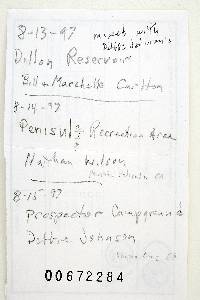 8-13-97
meet with
Dillon Reservoir
Bill & Marshelle Carlton
8-14-97
Penisula Recreation Area
?
Nathan Wilson
8-15-97
Prospector Campground
Debbie Johnson
00672284